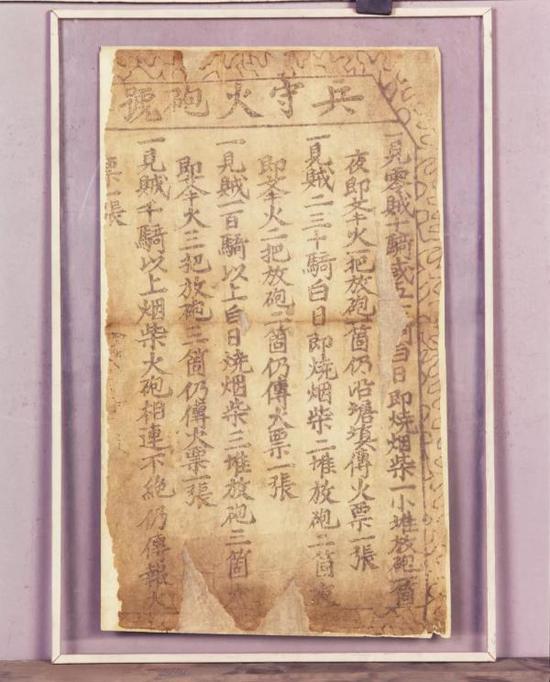 兵守火砲號
一見零賊十騎或三騎白日即燒烟柴一小堆放砲一箇
夜即举火一把放砲一箇仍沿塘傳火票一張
一見賊二三十騎白日即燒烟柴二堆放砲二箇夜
即举火二把放砲二箇仍傳火票一張
一見賊一百騎以上白日燒烟柴三堆放砲三箇
即举火三把放砲三箇仍傳火票一張
一見賊千騎以上烟柴火砲相連不絶仍傳報火
票一張